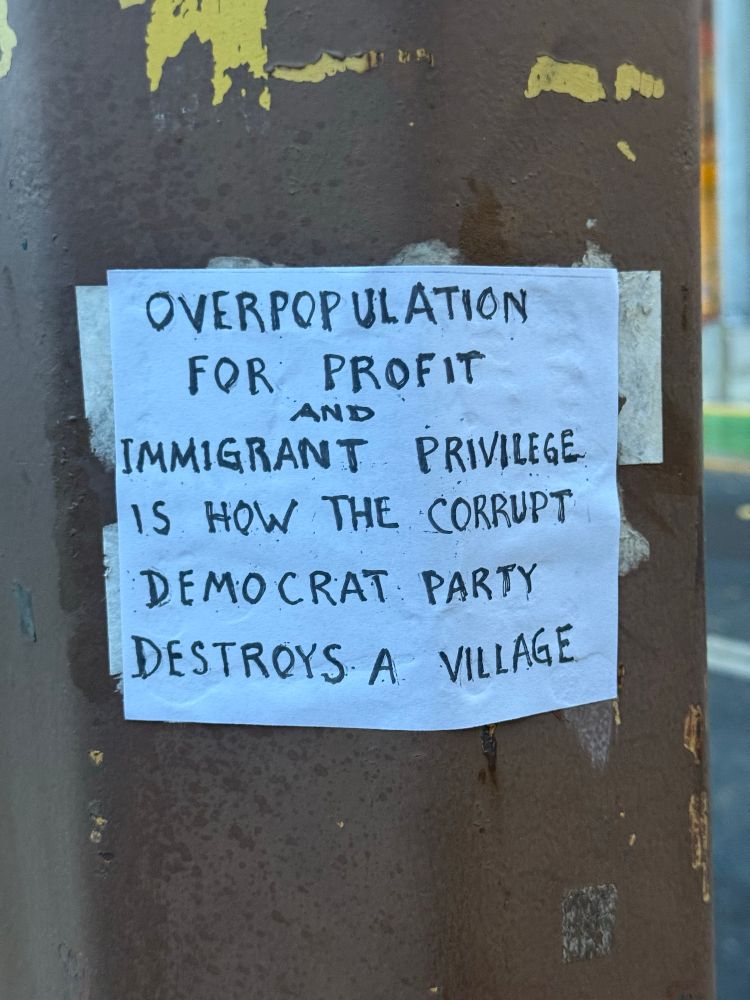 OVERPOPULATION
FOR PROFIT
AND
IMMIGRANT PRIVILEGE
IS HOW THE CORRUPT
DEMOCRAT PARTY
DESTROYS A VILLAGE